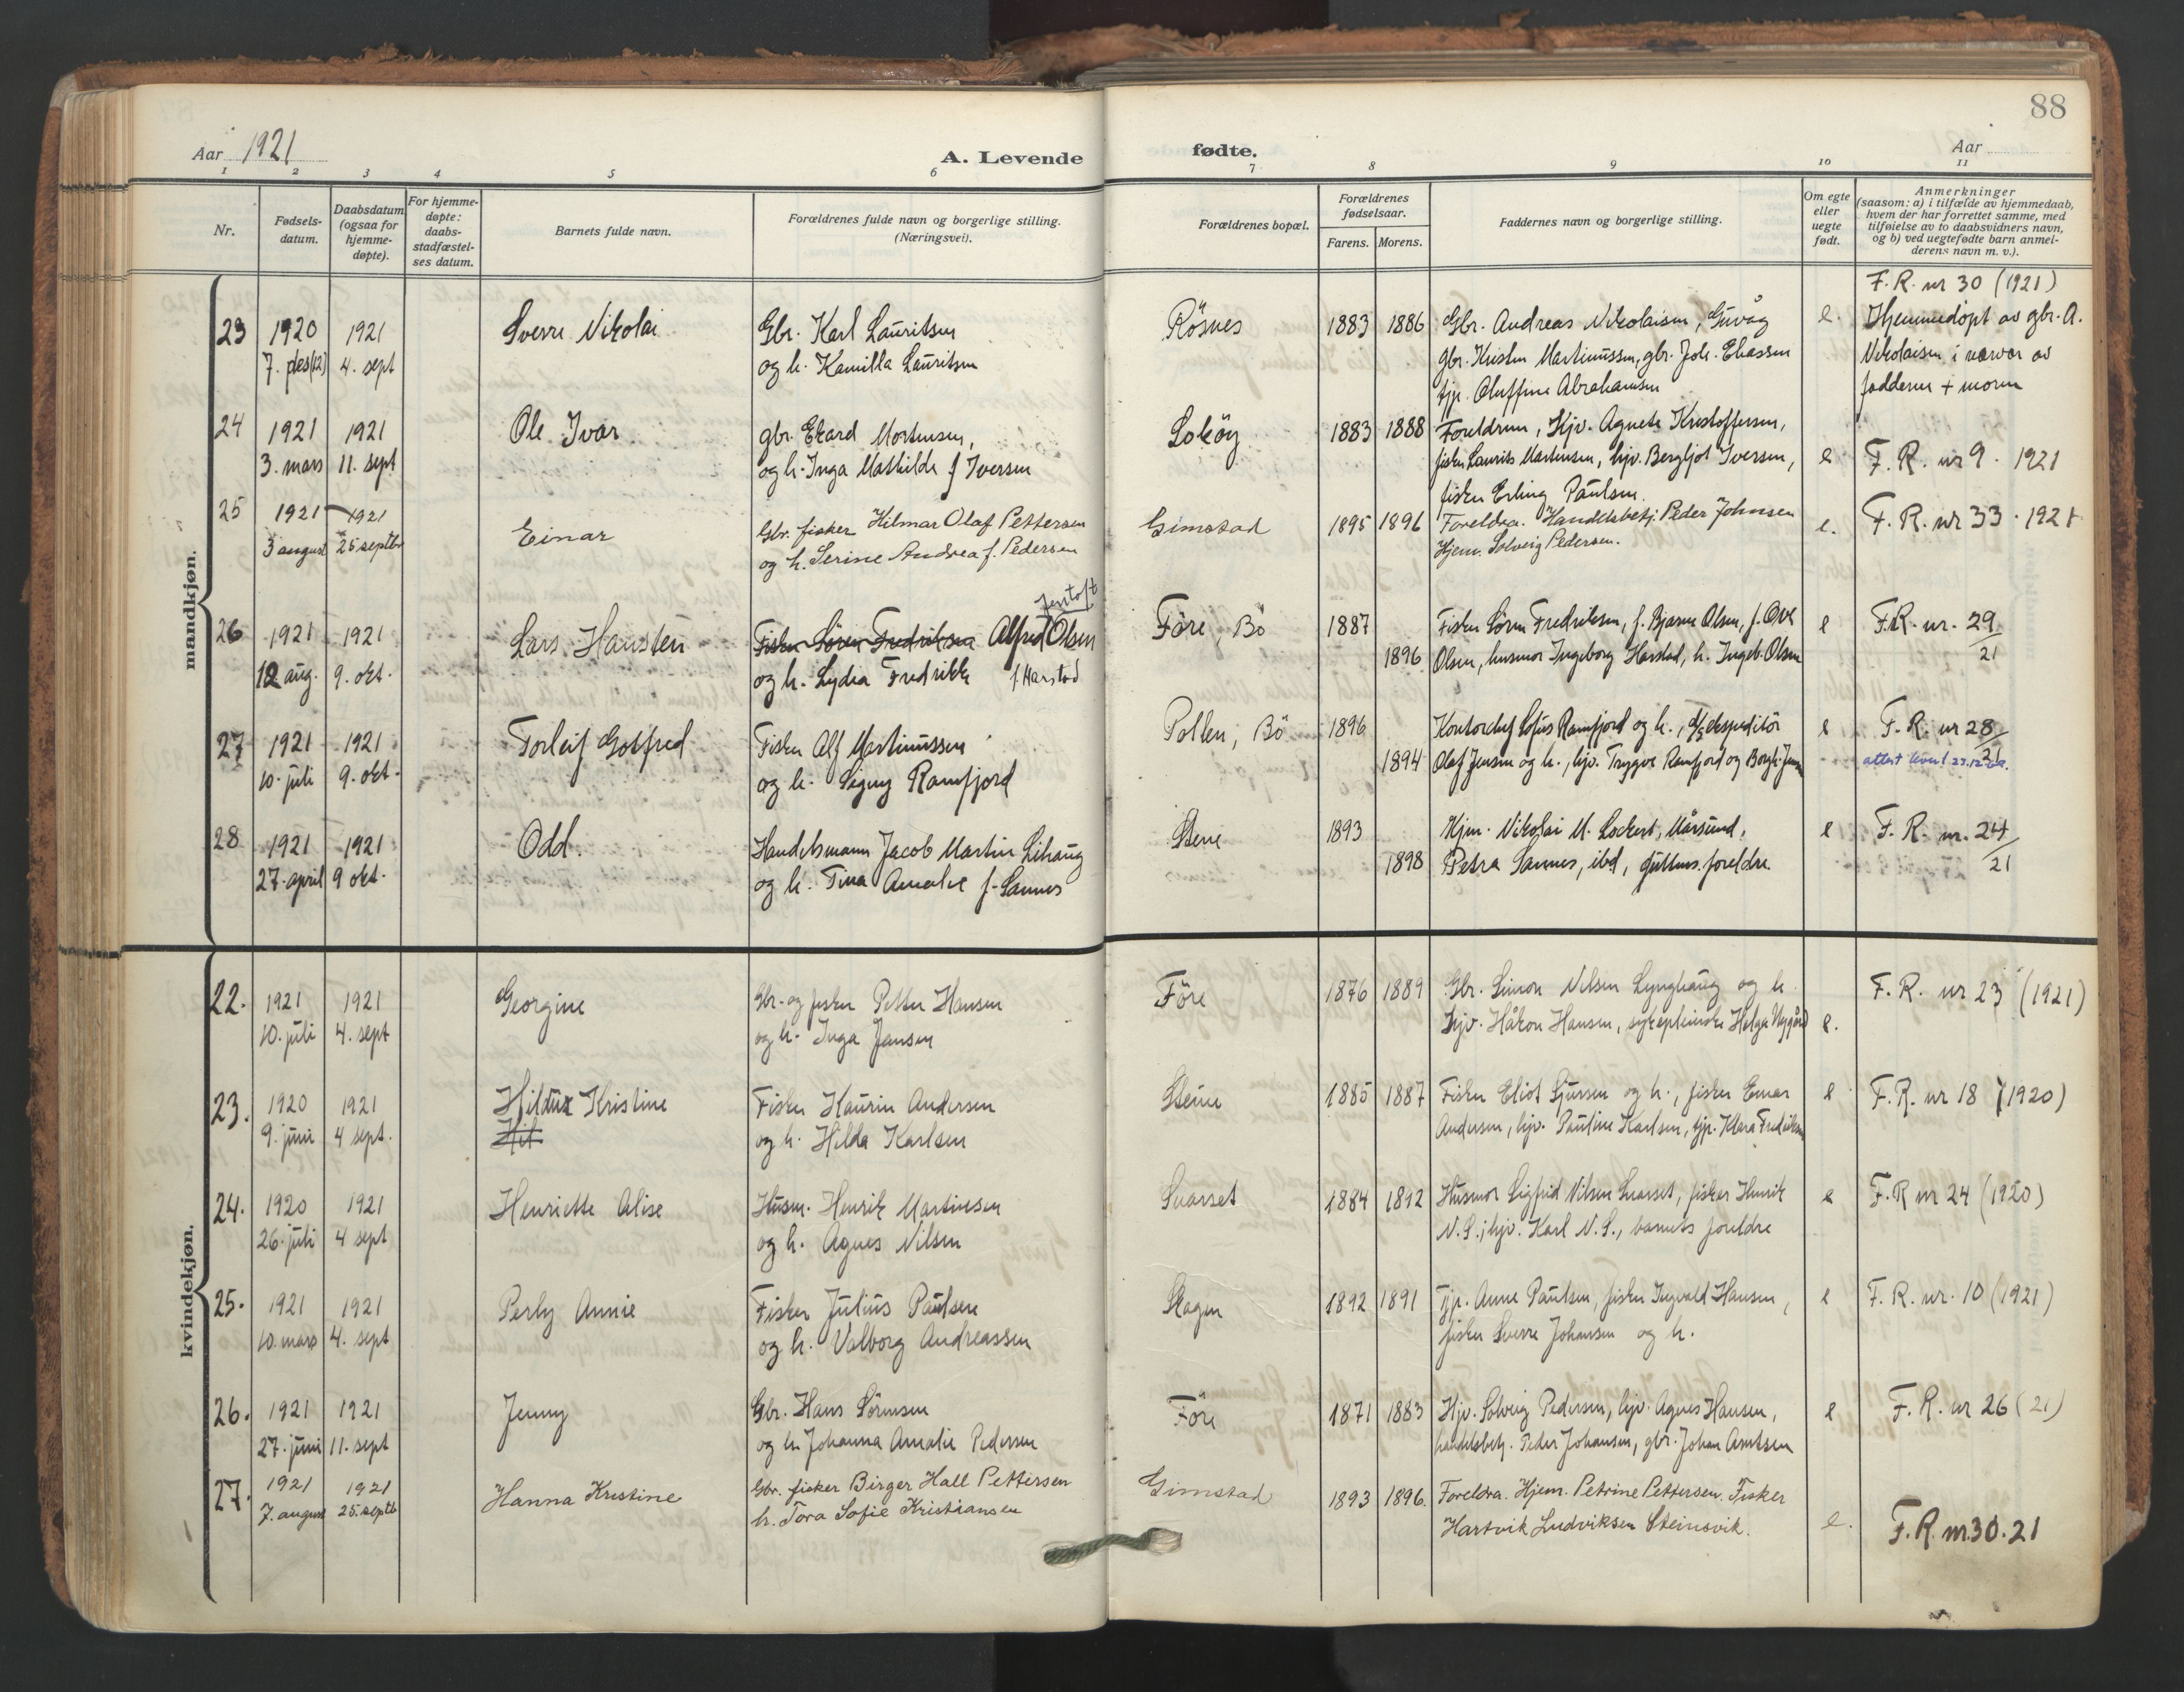 88
Aar 1921
A. Levende
fødte.
Aar
1 2 3 4 5 6 7 8 9 10 11
Nr.
Fødsels-
datum.
Daabsdatum
(ogsaa for
hjemme-
døpte).
For hjemme-
døpte:
daabs-
stadfæstel-
ses datum.
Barnets fulde navn.
Forældrenes fulde navn og borgerlige stilling.
(Næringsvei).
Forældrenes bopæl.
Forældrenes
fødselsaar.
Farens. Morens.
Faddernes navn og borgerlige stilling.
Om egte
eller
uegte
født.
Anmerkninger
(saasom: a) i tilfælde av hjemmedaab,
hvem der har forrettet samme, med
tilføielse av to daabsvidners navn,
og b) ved uegtefødte barn anmel-
derens navn m. v.).
mandkjøn.
F. R. nr 30 (1921)
23 1920 1921 Sverre Nikolai Gbr. Karl Lauritsen Røsnes 1883 1886 Gbr. Andreas Nikolaisen, Guvåg e. Hjemmedøpt av gbr. A.
7. des (12) 4. sept og h. Kamilla Lauritsen gbr. Kristen Martinussen, gbr. Joh. Eliassen Nikolaisen i nærvær av
tjp. Oluffine Abrahamsen fadderne + moren
24 1921 1921 Ole Ivar gbr. Ekard Mortensen, Sokøy 1883 1888 Foreldrene, Hjv. Agnete Kristoffersen,
3. mars 11. sept og h. Inga Mathilde f Iversen fisker Laurits Martinsen, hjv. Bergljot Iversen, e F. R. nr 9. 1921
fisker Erling Paulsen.
25 1921 1921 Einar Gbr. fisker Hilmar Olaf Pettersen Gimstad 1895 1896 Foreldra. Handelsbetj. Peder Johnsen e. F. R. nr 33. 1921
3 august 25 septbr og h. Serine Andrea f. Pedersen Hjem. Solveig Pedersen.
Jentoft
26 1921 1921 Lars Hansten Fisker Sören Fredriksen Alfred Olsen Före, Bö 1887 Fisker Sören Fredriksen, f. Bjarne Olsen, f. Ove e F.R. nr. 29
12 aug. 9. okt. og h. Lydia Fredrikke f. Harstad 1896 Olsen, husmor Ingeborg Harstad, h. Ingeb. Olsen 21
27 1921 1921 Torleif Gotfred Fisker Alf Martinussen Pollen, Bö 1896 Kontorchef Sofus Ramfjord og h., d/s ekspeditör e F. R. nr 28
10. juli 9. okt. og h. Signy Ramfjord 1894 Olaf Jensen og h., hjv. Trygve Ramfjord og Borgh. Jensen 21
28 1921 1921 Odd. Handelsmann Jacob Martin Lihaug Steine 1893 Hjm. Nikolai M. Lockert, Mårsund, e F. R. nr. 24
27. april 9 okt. og h. Tina Amalie f. Sannes 1898 Petra Sannes, ibd, guttens foreldre 21
kvindekjøn.
22. 1921 1921 Georgine Gbr. og fisker Petter Hansen Före 1876 1889 Gbr. Simon Nilsen Lynghaug og h. F. R. nr 23 (1921)
10. juli 4. sept og h. Inga Jensen hjv. Håkon Hansen, sykepleierske Helga Nygård e.
23. 1920 1921 Hildur Kristine Fisker Kaurin Andersen Steine 1885 1887 Fisker Eliot Sjursen og h., fisker Einar e F. R. nr 18 (1920)
9. juni 4 sept. Hil og h. Hilda Karlsen Andersen, hjv. Pauline Karlsen, tjp. Klara Fredriksen
24. 1920 1921 Henriette Alise Husm. Henrik Martinsen Svarset 1884 1892 Husmor Sigfrid Nilsen Svarset, fisker Henrik e F. R nr 24 (1920)
26. juli 4 sept og h. Agnes Nilsen N. S.; hjv. Karl N. S., barnets foreldre
25. 1921 1921 Perly Annie Fisker Julius Paulsen Skagen 1892 1891 Tjp. Anne Paulsen, fisker Ingvald Hansen, e F. R. nr. 10 (1921)
10. mars 4. sept og h. Valborg Andreassen fisker Sverre Johansen og h.
26. 1921 1921 Jenny Gbr. Hans Sörensen Före 1871 1883 Hjv. Solveig Pedersen, hjv. Agnes Hansen, e F. R. nr 26 (21)
27. juni 11. sept og h. Johanna Amalie Pedersen handelsbetj. Peder Johansen, gbr. Johan Arntsen
27. 1921 1921 Hanna Kristine Gbr. fisker Birger Hall Pettersen Gimstad 1893 1896. Foreldra. Hjem. Petrine Pettersen. Fisker
7. august 25. septb h. Tora Sofie Kristiansen Hartvik Ludviksen Steinsvik. e. F. R. nr. 30. 21